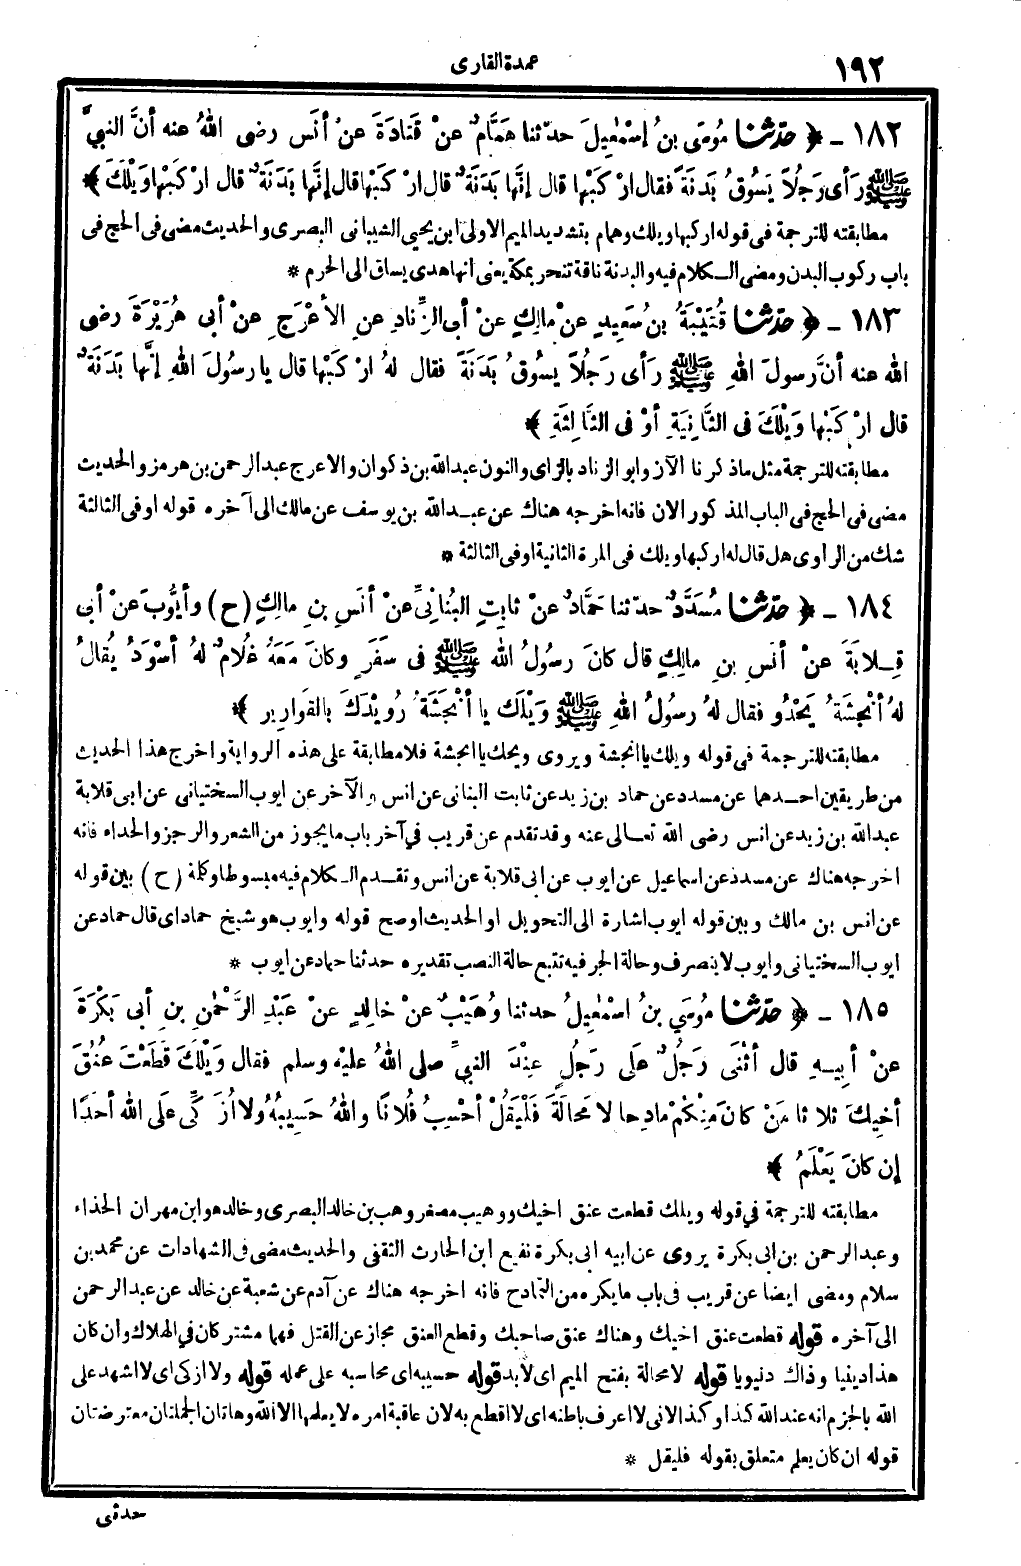 ١٩٢
عمدة القارى
١٨٢ ـ ﴿ حَدّثنا مُوسَى بنُ إسْمٰعِيلَ حدّثنا هَمَّامٌ عنْ قَتَادَةَ عنْ أنَسٍ رضى اللهُ عنه أنَّ النبيَّ
ﷺ رَأى رَجُلاً يَسُوقُ بَدَنَةً فقال ارْكَبْها قال إنَّها بَدَنَةٌ قال ارْكَبْها قال إنَّها بَدَنَةٌ قال ارْكَبْها وَيْلَكَ ﴾
مطابقته للترجمة فى قوله اركبها ويلك وهمام بتشديد الميم الاولى ابن يحيى الشيبانى البصرى والحديث مضى فى الحج فى
باب ركوب البدن ومضى الكلام فيه والبدنة ناقة تنحر بمكة يعنى انها هدى يساق الى الحرم *
١٨٣ ـ ﴿ حَدّثنا قُتَيْبَةُ بنُ سَعِيدٍ عنْ مالِكٍ عنْ أبى الزِّنادِ عنِ الأعْرَجِ عنْ أبى هُرَيْرَةَ رضى
الله عنه أنَّ رسولَ اللهِ ﷺ رَأى رَجُلاً يَسُوقُ بَدَنَةً فقال لهُ ارْكَبْها قال يا رسُولَ اللهِ إنَّها بَدَنَةٌ
قال ارْكَبْها وَيْلَكَ فى الثَّانِيَةِ أوْ فى الثَّالِثَةِ ﴾
مطابقته للترجمة مثل ماذكرنا الآن وابو الزناد بالزاى والنون عبدالله بن ذكوان والاعرج عبدالرحمن بن هرمز والحديث
مضى فى الحج فى الباب المذكور الان فانه اخرجه هناك عن عبدالله بن يوسف عن مالك الى آخره قوله اوفى الثالثة
شك من الراوى هل قال له اركبها ويلك فى المرة الثانية اوفى الثالثة *
١٨٤ ـ ﴿ حَدّثنا مُسَدَّدٌ حدّثنا حَمَّادٌ عنْ ثابِتٍ البُنانِىِّ عنْ أنَسِ بنِ مالِكٍ (ح) وأيُّوبَ عنْ أبى
قِلابَةَ عنْ أنَسِ بنِ مالِكٍ قال كانَ رسُولُ الله ﷺ فى سَفَرٍ وكانَ مَعَهُ غُلامٌ لهُ أسْوَدُ يُقالُ
لهُ أنْجَشَةُ يَحْدُو فقال لهُ رسولُ اللهِ ﷺ وَيْلَكَ يا أنْجَشَةُ رُوَيْدَكَ بالقَوارِيرِ ﴾
مطابقته للترجمة فى قوله ويلك يا انجشة ويروى ويحك يا انجشة فلا مطابقة على هذه الرواية واخرج هذا الحديث
من طريقين احدهما عن مسدد عن حماد بن زيد عن ثابت البنانى عن انس والآخر عن ايوب السختيانى عن ابى قلابة
عبدالله بن زيد عن انس رضى الله تعالى عنه وقد تقدم عن قريب في آخر باب مايجوز من الشعر والرجز والحداء فانه
اخرجه هناك عن مسدد عن اسماعيل عن ايوب عن ابى قلابة عن انس وتقدم الكلام فيه مبسوطا وكلمة (ح) بين قوله
عن انس بن مالك وبين قوله ايوب اشارة الى التحويل او الحديث اوصح قوله وايوب هو شيخ حماد اى قال حماد عن
ايوب السختيانى وايوب لا ينصرف وحالة الجر فيه تتبع حالة النصب تقديره حدثنا حماد عن ايوب *
١٨٥ ـ ﴿ حَدّثنا مُوسَي بنُ اسْمٰعِيلُ حدثنا وُهَيْبٌ عنْ خالِدٍ عنْ عَبْدِ الرَّحْمٰنِ بنِ أبى بَكْرَةَ
عنْ أبِيهِ قال أثْنَى رَجُلٌ عَلَى رَجُلٍ عِنْدَ النبيِّ صلى اللهُ عليْه وسلم فقال وَيْلَكَ قَطَعْتَ عُنُقَ
أخِيكَ ثلاثا مَنْ كانَ مِنْكُمْ مادِحا لا مَحالَةَ فَلْيَقُلْ أحْسِبُ فُلانًا واللهُ حَسِيبُهُ ولا اُزَكِّى عَلَى الله أحَدًا
إن كانَ يَعْلَمُ ﴾
مطابقته للترجمة في قوله ويلك قطعت عنق اخيك ووهيب مصغر وهب بن خالد البصرى وخالد هو ابن مهران الحذاء
وعبدالرحمن بن ابى بكرة يروى عن ابيه ابى بكرة نفيع ابن الحارث الثقفى والحديث مضى فى الشهادات عن محمد بن
سلام ومضى ايضا عن قريب فى باب مايكره من التمادح فانه اخرجه هناك عن آدم عن شعبة عن خالد عن عبدالرحمن
الى آخره قوله قطعت عنق اخيك وهناك عنق صاحبك وقطع العنق مجاز عن القتل فهما مشتركان في الهلاك وان كان
هذا دينيا وذاك دنيويا قوله لا محالة بفتح الميم اى لابد قوله حسيبه اى محاسبه على عمله قوله ولا ازكى اى لا اشهد على
الله بالجزم انه عند الله كذا وكذا لانى لا اعرف باطنه اى لا اقطع به لان عاقبة امره لا يعلمها الا الله وهاتان الجملتان معترضتان
قوله ان كان يعلم متعلق بقوله فليقل *
حدثى